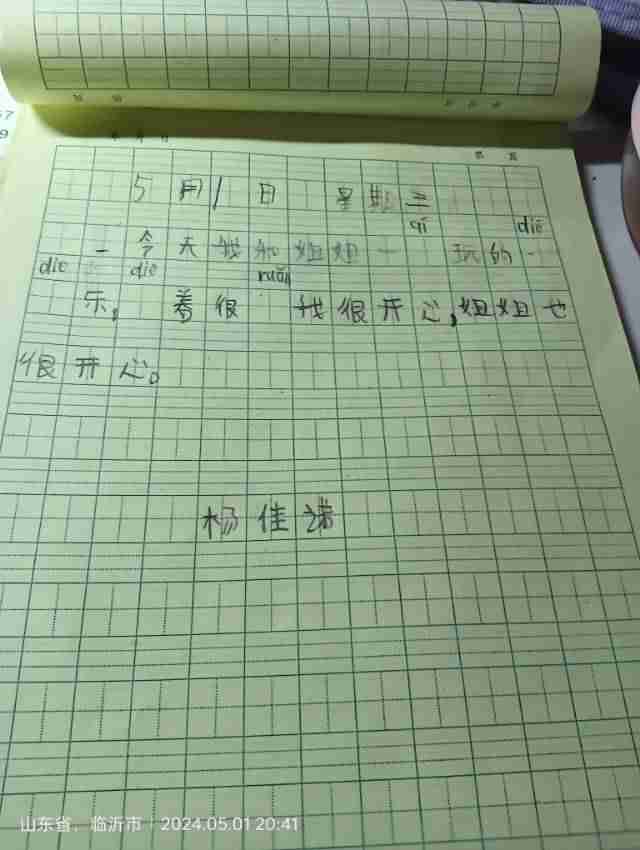 5月1日 星期三
qí dié
一今天我和姐姐一 玩的一
die dié ruǎn
乐,着很 我很开心,姐姐也
很开心。
杨佳
山东省，临沂市 | 2024.05.01 20:41